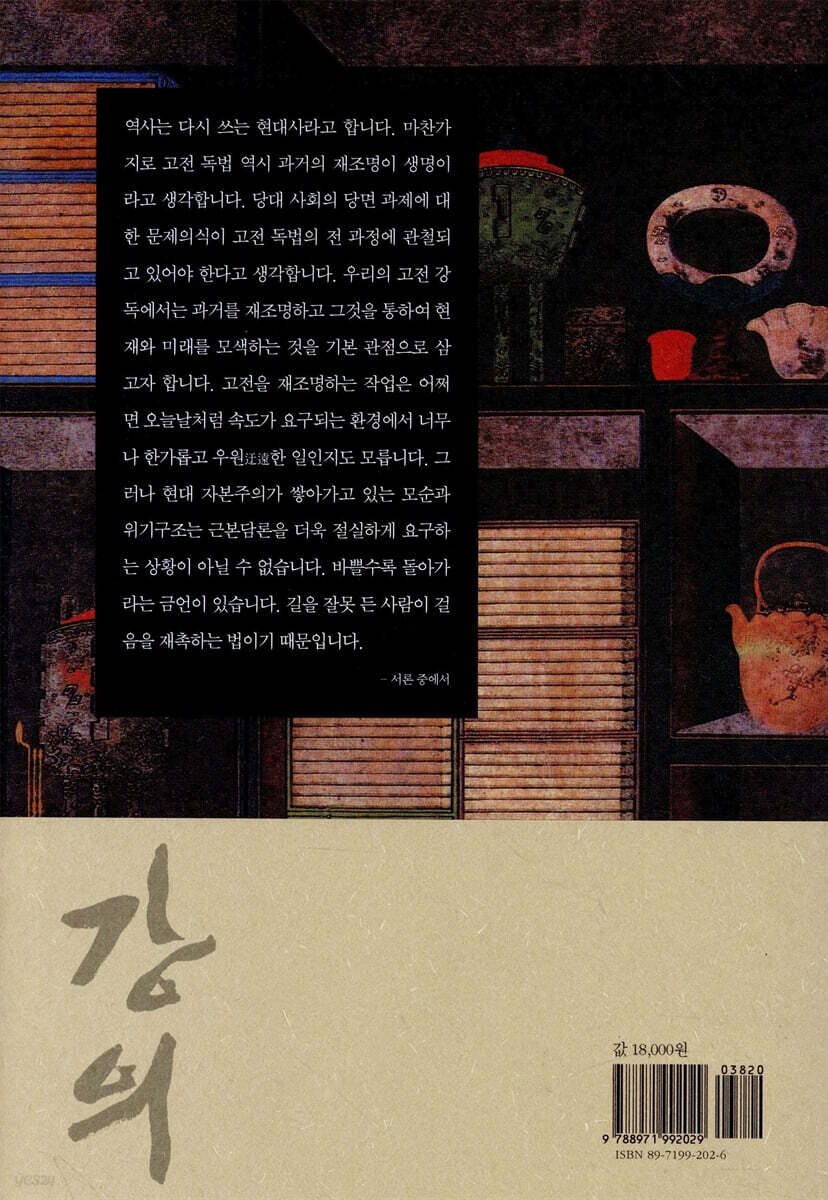 역사는 다시 쓰는 현대사라고 합니다. 마찬가
지로 고전 독법 역시 과거의 재조명이 생명이
라고 생각합니다. 당대 사회의 당면 과제에 대
한 문제의식이 고전 독법의 전 과정에 관철되
고 있어야 한다고 생각합니다. 우리의 고전 강
독에서는 과거를 재조명하고 그것을 통하여 현
재와 미래를 모색하는 것을 기본 관점으로 삼
고자 합니다. 고전을 재조명하는 작업은 어쩌
면 오늘날처럼 속도가 요구되는 환경에서 너무
나 한가롭고 우원迂遠한 일인지도 모릅니다. 그
러나 현대 자본주의가 쌓아가고 있는 모순과
위기구조는 근본담론을 더욱 절실하게 요구하
는 상황이 아닐 수 없습니다. 바쁠수록 돌아가
라는 금언이 있습니다. 길을 잘못 든 사람이 걸
음을 재촉하는 법이기 때문입니다.
– 서론 중에서
강의
값 18,000원
03820
9 788971 992029
ISBN 89-7199-202-6
yes24